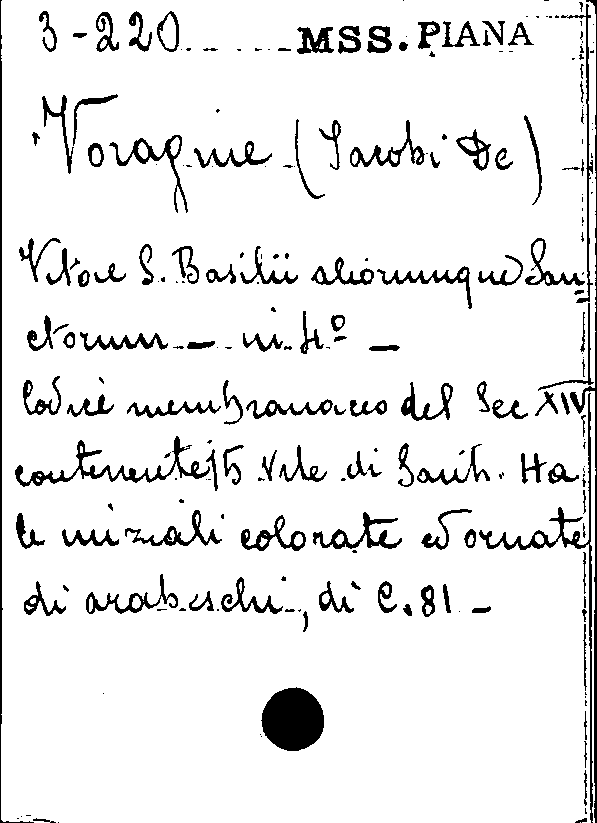 3-220 MSS. PIANA
Voragine (Jacobi De)
Vitae S. Basilii aliorumque San=
ctorum — in 4º —
Codice membranaceo del Sec XIV
contenente 15 Vite di Santi. Ha
le iniziali colorate ed ornate
di arabeschi, di C. 81 —